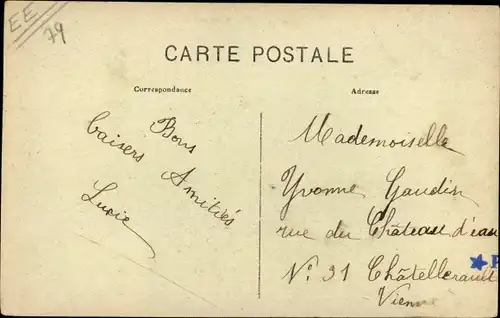 EE
79
CARTE POSTALE
Correspondance
Adresse
Bons
baisers Amitiés
Lucie
Mademoiselle
Yvonne Gaudin
rue du Château d'eau
N° 31 Châtellerault
Vienne